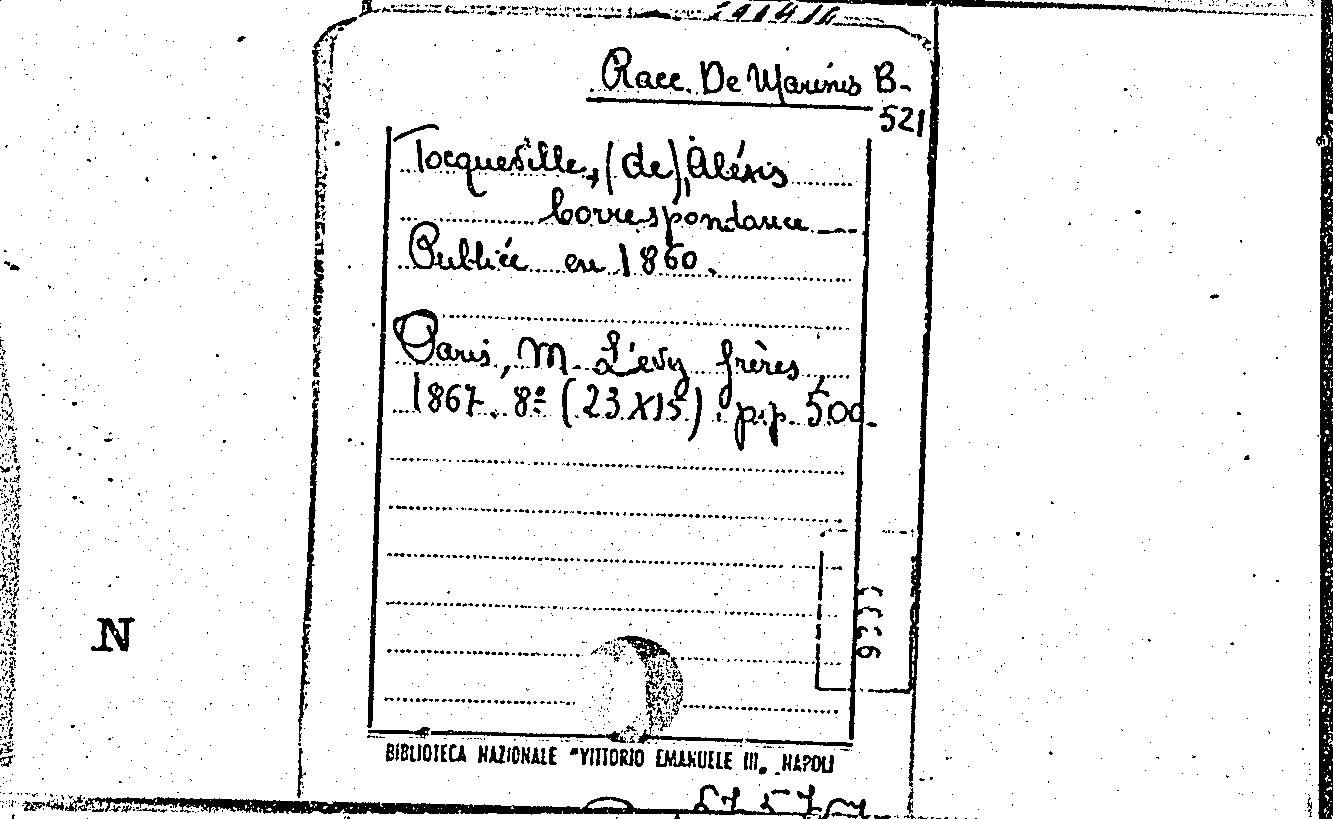 Racc. De Marinis B-
521
Tocqueville, (de) Aléxis
Correspondance
Publiée en 1860.
Paris, M. Lévy frères,
1867. 8º (23X15). p.p. 500.
N
BIBLIOTECA NAZIONALE "VITTORIO EMANUELE III„ NAPOLI